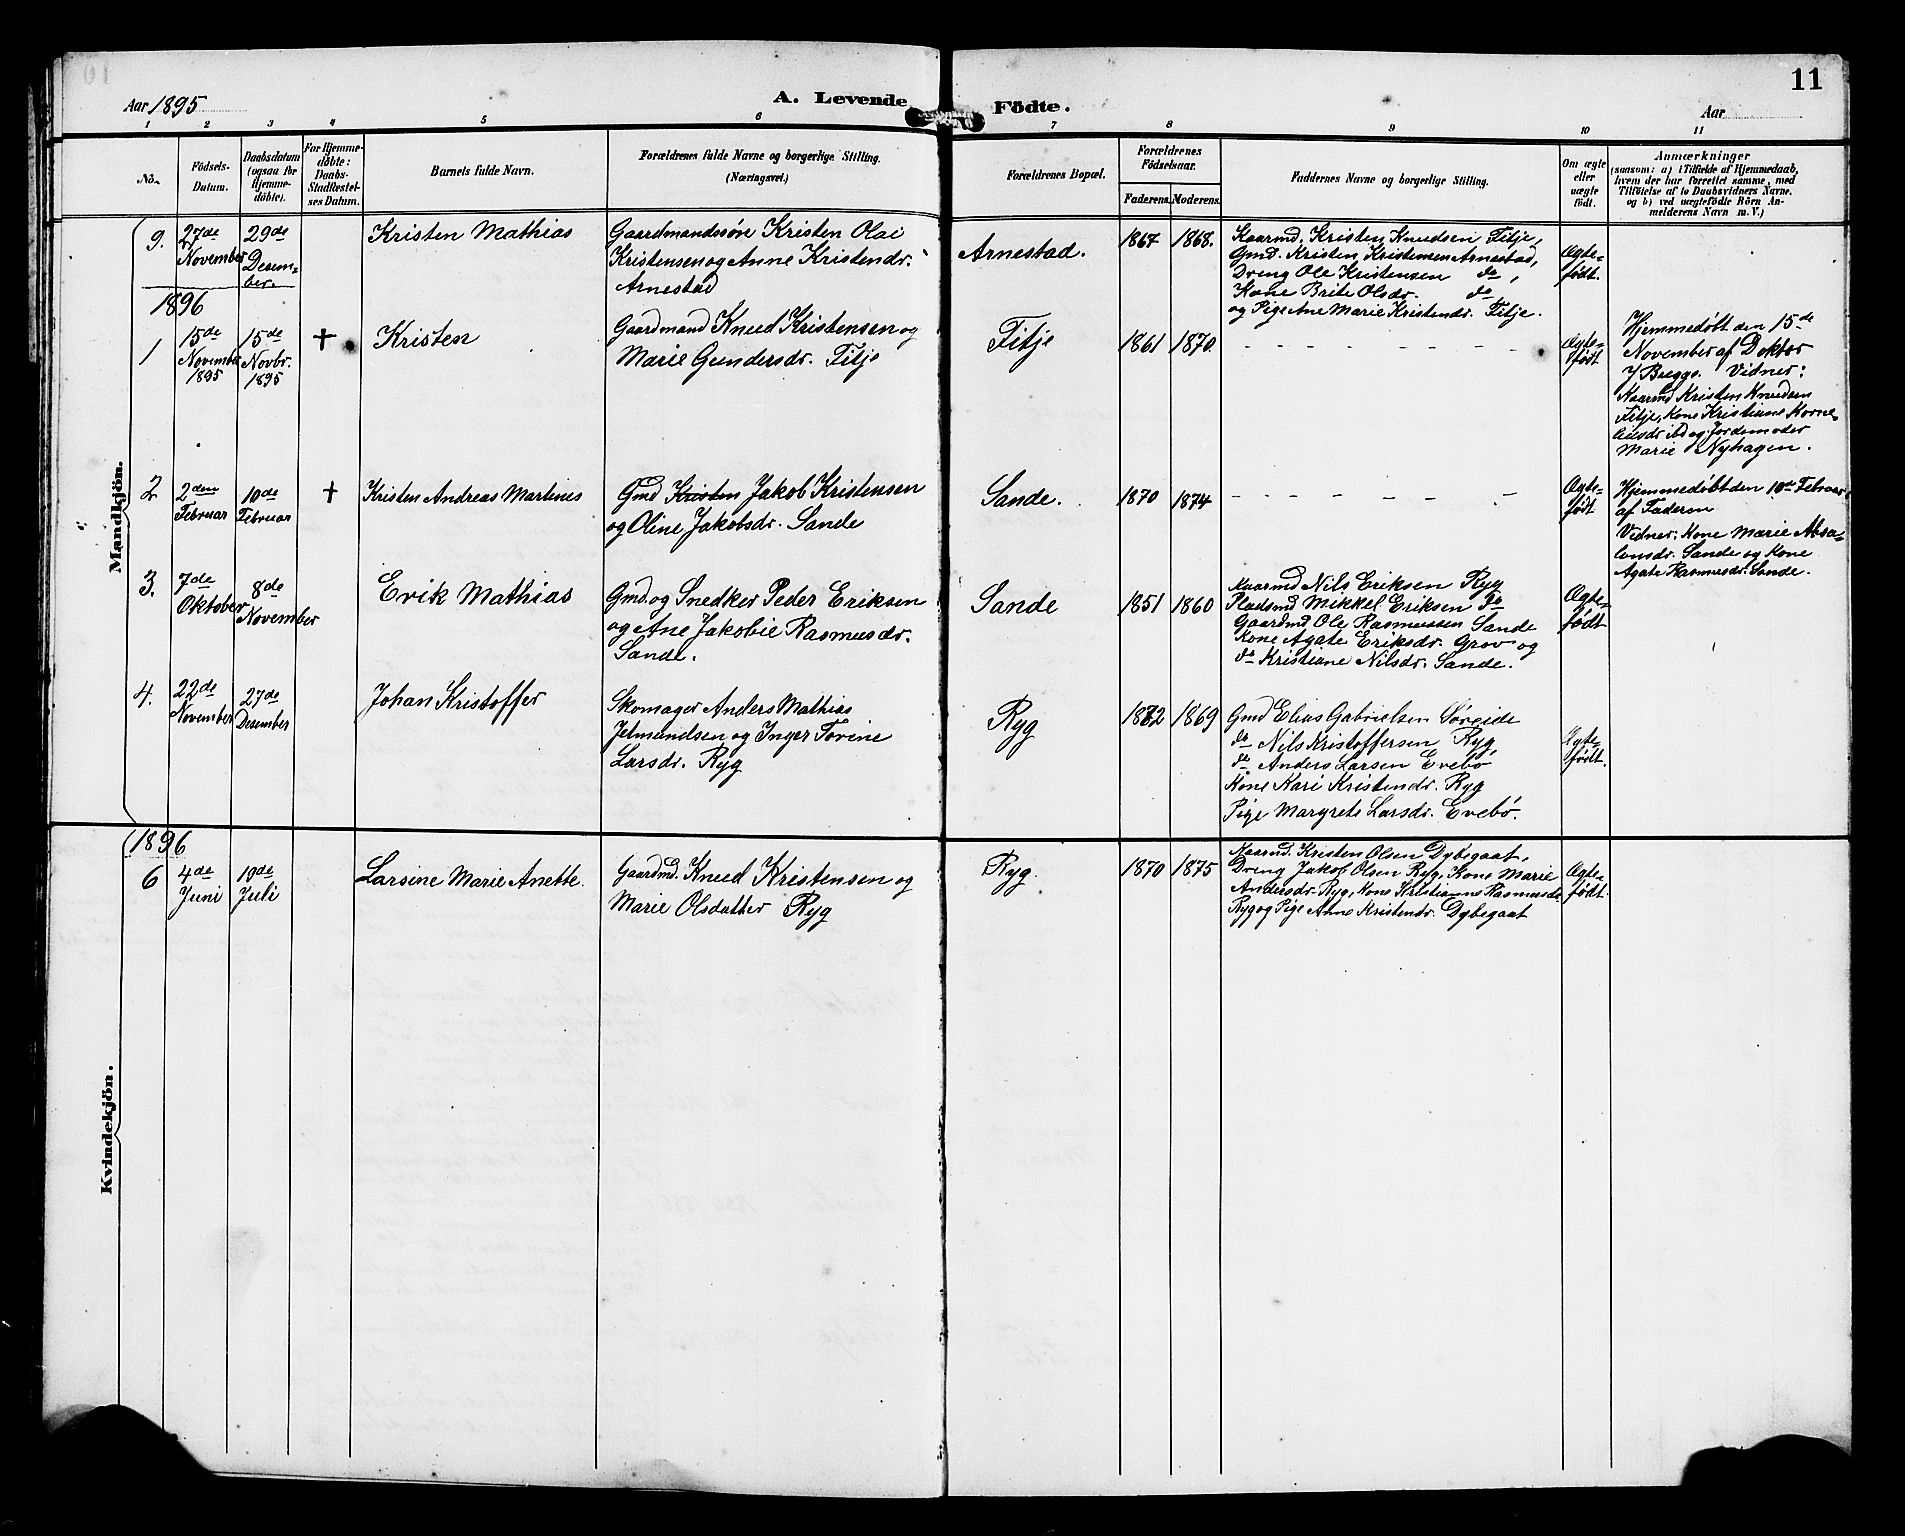 11
Aar 1895
A. Levende Födte.
Aar
1 2 3 4 5 6 7 8 9 10 11
No.
Födsels-Datum.
Daabsdatum (ogsaa for Hjemme-döbte).
For Hjemme-döbte: Daabs-Stadfæstel-ses Datum.
Barnets fulde Navn.
Forældrenes fulde Navne og borgerlige Stilling.
(Næringsvei.)
Forældrenes Bopæl.
Forældrenes Födselsaar.
Faderens. Moderens.
Faddernes Navne og borgerlige Stilling.
Om ægte eller uægte födt.
Anmærkninger
(saasom: a) i Tilfælde af Hjemmedaab,
hvem der har forrettet samme, med
Tilföielse af to Daabsvidners Navne.
og b) ved uægtefödte Börn An-
melderens Navn m. V.)
Mandkjön.
9.
27de
November
29de
Desem-
ber.
Kristen Mathias
Gaardmandssön Kristen Olai
Kristensen og Anne Kristendr.
Arnestad
Arnestad.
1867 1868.
Kaarmd. Kristen Knudsen Fitje,
Gmd. Kristen Kristensen Arnestad,
Dreng Ole Kristensen do,
Kone Brite Olsdr. do
og Pige Ane Marie Kristendr. Fitje.
Ægte-
födt.
1896
1
15de
November
1895
15de
Novbr.
1895
+
Kristen
Gaardmand Knud Kristensen og
Marie Gundersdr. Fitje
Fitje
1861 1870.
- - - - - - - -
Ægte-
födt
Hjemmedöbt den 15de
November af Doktor
Vidner:
Kaarmd Kristen Knudsen
Fitje, Kone Kristiane Korne-
liusdr ibd og Jordemoder
Marie Nyhagen.
2
2den
Februar
10de
Februar
+
Kristen Andreas Martines
Gmd Kristen Jakob Kristensen
og Oline Jakobsdr. Sande
Sande.
1870 1874
- - - - - - -
Ægte-
födt
Hjemmedöbt den 10de Februar
af Faderen
Vidner: Kone Marie Absa-
lonsdr. Sande og Kone
Agate Rasmusdr. Sande.
3.
7de
Oktober
8de
November
Erik Mathias
Gmd. og Snedker Peder Eriksen
og Ane Jakobie Rasmusdr.
Sande.
Sande
1851 1860
Kaarmd Nils Eriksen Ryg
Pladsmd Mikkel Eriksen do
Gaardmd Ole Rasmussen Sande
Kone Agate Eriksdr. Grov og
do Kristiane Nilsdr. Sande.
Ægte-
födt
4.
22de
November
27de
Desember
Johan Kristoffer
Skomager Anders Mathias
Jetmundsen og Inger Torine
Larsdr. Ryg
Ryg
1872 1869
Gmd Elias Gabrielsen Söreide
do Nils Kristoffersen Ryg,
do Anders Larsen Evebö
Kone Kari Kristendr. Ryg
Pige Margrete Larsdr. Evebö.
Ægte-
födt.
Kvindekjön.
1896
6
4de
Juni
19de
Juli
Larsine Marie Anette.
Gaardmd. Knud Kristensen og
Marie Olsdatter Ryg
Ryg.
1870 1875
Kaarmd. Kristen Olsen Dybegaat,
Dreng Jakob Olsen Ryg, Kone Marie
Andersdr. Ryg, Kone Kristianne Rasmusdr.
Ryg og Pige Anne Kristendr. Dybegaat
Ægte-
födt.